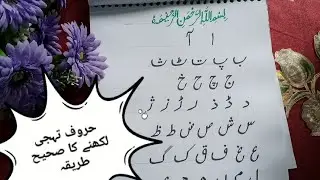 بسم اللہ الرحمن الرحیم
ا آ
ب پ ت ٹ ث
ج چ ح خ
د ڈ ذ ر ڑ ز ژ
س ش ص ض ط ظ
ع غ ف ق ک گ
حروف تہجی
لکھنے کا صحیح
طریقہ